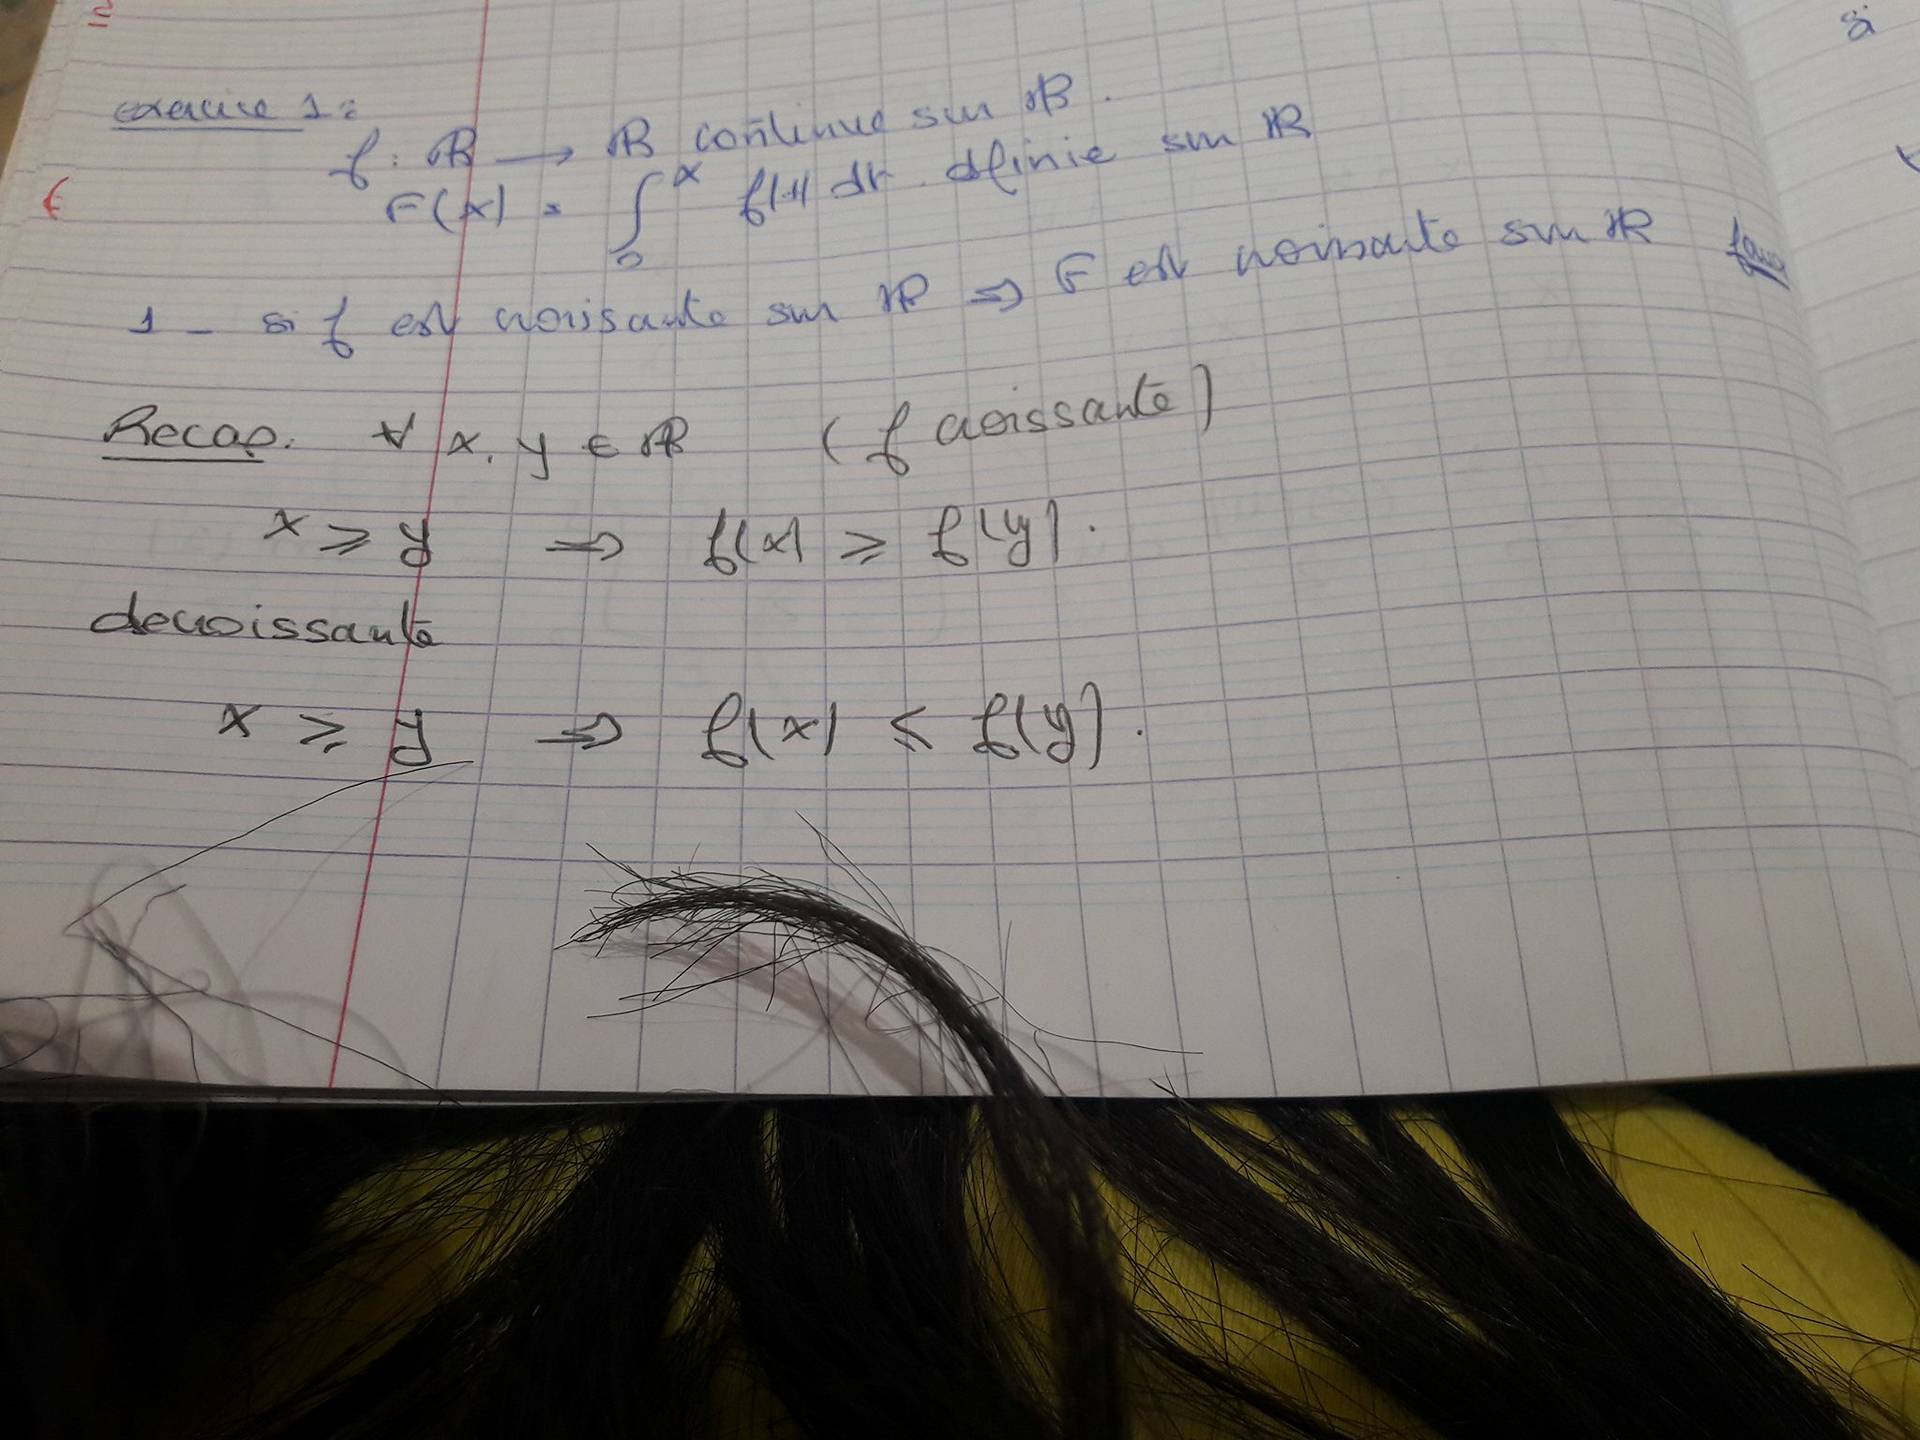 exercice 1:
f: ℝ → ℝ continue sur ℝ.
F(x) = ∫₀ˣ f(t) dt. dfinie sur ℝ
1 - si f est croissante sur ℝ ⇒ F est croissante sur ℝ faux
Recap. ∀ x, y ∈ ℝ (f croissante)
x ≥ y ⇒ f(x) ≥ f(y).
decroissante
x ≥ y ⇒ f(x) ≤ f(y).
si